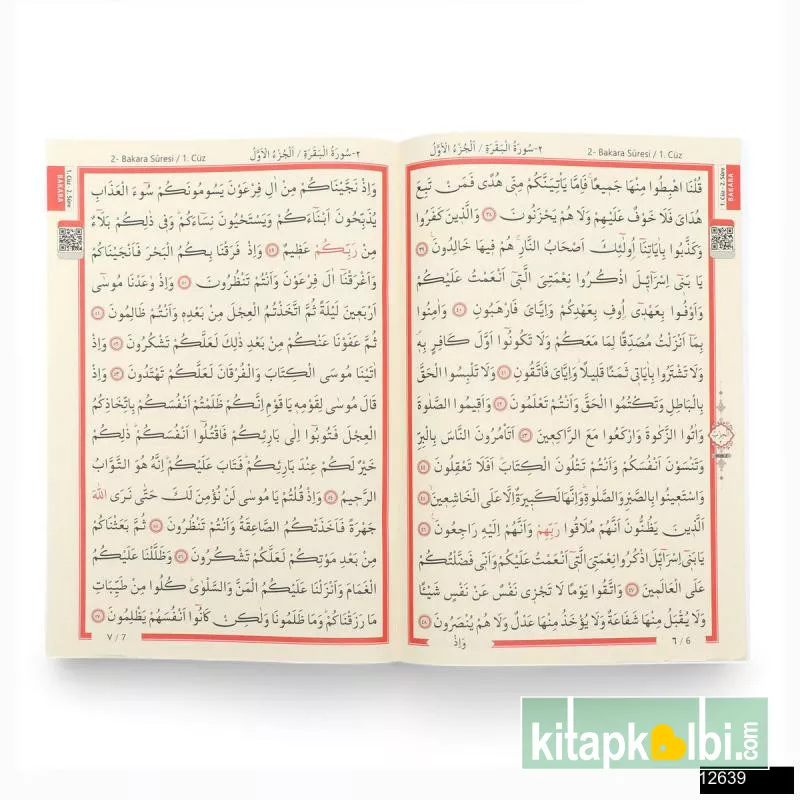 2- Bakara Sûresi / 1. Cüz
٢-سُورَةُ الْبَقَرَةِ / اَلْجُزْءُ الْاَوَّلُ
1. Cüz - 2. Sûre
BAKARA
قُلْنَا اهْبِطُوا مِنْهَا جَمٖيعاًۚ فَاِمَّا يَأْتِيَنَّكُمْ مِنّٖي هُدًى فَمَنْ تَبِعَ
هُدَايَ فَلَا خَوْفٌ عَلَيْهِمْ وَلَا هُمْ يَحْزَنُونَ ٣٨ وَالَّذٖينَ كَفَرُوا
وَكَذَّبُوا بِاٰيَاتِنَٓا اُولٰٓئِكَ اَصْحَابُ النَّارِۚ هُمْ فٖيهَا خَالِدُونَ ٣٩
يَا بَنٖٓي اِسْرَٓائٖلَ اذْكُرُوا نِعْمَتِيَ الَّتٖٓي اَنْعَمْتُ عَلَيْكُمْ
وَاَوْفُوا بِعَهْدٖٓي اُو۫فِ بِعَهْدِكُمْ وَاِيَّايَ فَارْهَبُونِ ٤٠ وَاٰمِنُوا
بِمَٓا اَنْزَلْتُ مُصَدِّقًا لِمَا مَعَكُمْ وَلَا تَكُونُٓوا اَوَّلَ كَافِرٍ بِهٖۖ
وَلَا تَشْتَرُوا بِاٰيَاتٖي ثَمَنًا قَلٖيلًاۘ وَاِيَّايَ فَاتَّقُونِ ٤١ وَلَا تَلْبِسُوا الْحَقَّ
بِالْبَاطِلِ وَتَكْتُمُوا الْحَقَّ وَاَنْتُمْ تَعْلَمُونَ ٤٢ وَاَقٖيمُوا الصَّلٰوةَ
وَاٰتُوا الزَّكٰوةَ وَارْكَعُوا مَعَ الرَّاكِعٖينَ ٤٣ اَتَأْمُرُونَ النَّاسَ بِالْبِرِّ
وَتَنْسَوْنَ اَنْفُسَكُمْ وَاَنْتُمْ تَتْلُونَ الْكِتَابَۜ اَفَلَا تَعْقِلُونَ ٤٤
وَاسْتَعٖينُوا بِالصَّبْرِ وَالصَّلٰوةِۜ وَاِنَّهَا لَكَبٖيرَةٌ اِلَّا عَلَى الْخَاشِعٖينَۙ ٤٥
اَلَّذٖينَ يَظُنُّونَ اَنَّهُمْ مُلَاقُوا رَبِّهِمْ وَاَنَّهُمْ اِلَيْهِ رَاجِعُونَ ٤٦
يَا بَنٖٓي اِسْرَٓائٖلَ اذْكُرُوا نِعْمَتِيَ الَّتٖٓي اَنْعَمْتُ عَلَيْكُمْ وَاَنّٖي فَضَّلْتُكُمْ
عَلَى الْعَالَمٖينَ ٤٧ وَاتَّقُوا يَوْمًا لَا تَجْزٖي نَفْسٌ عَنْ نَفْسٍ شَيْـًٔا
وَلَا يُقْبَلُ مِنْهَا شَفَاعَةٌ وَلَا يُؤْخَذُ مِنْهَا عَدْلٌ وَلَا هُمْ يُنْصَرُونَ ٤٨
وَاِذْ
٦ / 6
٢-سُورَةُ الْبَقَرَةِ / اَلْجُزْءُ الْاَوَّلُ
2- Bakara Sûresi / 1. Cüz
1. Cüz - 2. Sûre
BAKARA
وَاِذْ نَجَّيْنَاكُمْ مِنْ اٰلِ فِرْعَوْنَ يَسُومُونَكُمْ سُٓوءَ الْعَذَابِ
يُذَبِّحُونَ اَبْنَٓاءَكُمْ وَيَسْتَحْيُونَ نِسَٓاءَكُمْۜ وَفٖي ذٰلِكُمْ بَلَٓاءٌ
مِنْ رَبِّكُمْ عَظٖيمٌ ٤٩ وَاِذْ فَرَقْنَا بِكُمُ الْبَحْرَ فَاَنْجَيْنَاكُمْ
وَاَغْرَقْنَٓا اٰلَ فِرْعَوْنَ وَاَنْتُمْ تَنْظُرُونَ ٥٠ وَاِذْ وٰعَدْنَا مُوسٰٓى
اَرْبَعٖينَ لَيْلَةً ثُمَّ اتَّخَذْتُمُ الْعِجْلَ مِنْ بَعْدِهٖ وَاَنْتُمْ ظَالِمُونَ ٥١
ثُمَّ عَفَوْنَا عَنْكُمْ مِنْ بَعْدِ ذٰلِكَ لَعَلَّكُمْ تَشْكُرُونَ ٥٢
وَاِذْ اٰتَيْنَا مُوسَى الْكِتَابَ وَالْفُرْقَانَ لَعَلَّكُمْ تَهْتَدُونَ ٥٣ وَاِذْ
قَالَ مُوسٰى لِقَوْمِهٖ يَا قَوْمِ اِنَّكُمْ ظَلَمْتُمْ اَنْفُسَكُمْ بِاتِّخَاذِكُمُ
الْعِجْلَ فَتُوبُٓوا اِلٰى بَارِئِكُمْ فَاقْتُلُٓوا اَنْفُسَكُمْۜ ذٰلِكُمْ
خَيْرٌ لَكُمْ عِنْدَ بَارِئِكُمْۜ فَتَابَ عَلَيْكُمْۜ اِنَّهُ هُوَ التَّوَّابُ
الرَّحٖيمُ ٥٤ وَاِذْ قُلْتُمْ يَا مُوسٰى لَنْ نُؤْمِنَ لَكَ حَتّٰى نَرَى اللّٰهَ
جَهْرَةً فَاَخَذَتْكُمُ الصَّاعِقَةُ وَاَنْتُمْ تَنْظُرُونَ ٥٥ ثُمَّ بَعَثْنَاكُمْ
مِنْ بَعْدِ مَوْتِكُمْ لَعَلَّكُمْ تَشْكُرُونَ ٥٦ وَظَلَّلْنَا عَلَيْكُمُ
الْغَمَامَ وَاَنْزَلْنَا عَلَيْكُمُ الْمَنَّ وَالسَّلْوٰىۜ كُلُوا مِنْ طَيِّبَاتِ
مَا رَزَقْنَاكُمْۜ وَمَا ظَلَمُونَا وَلٰكِنْ كَانُٓوا اَنْفُسَهُمْ يَظْلِمُونَ ٥٧
٧ / 7
kitapkalbi.com
12639